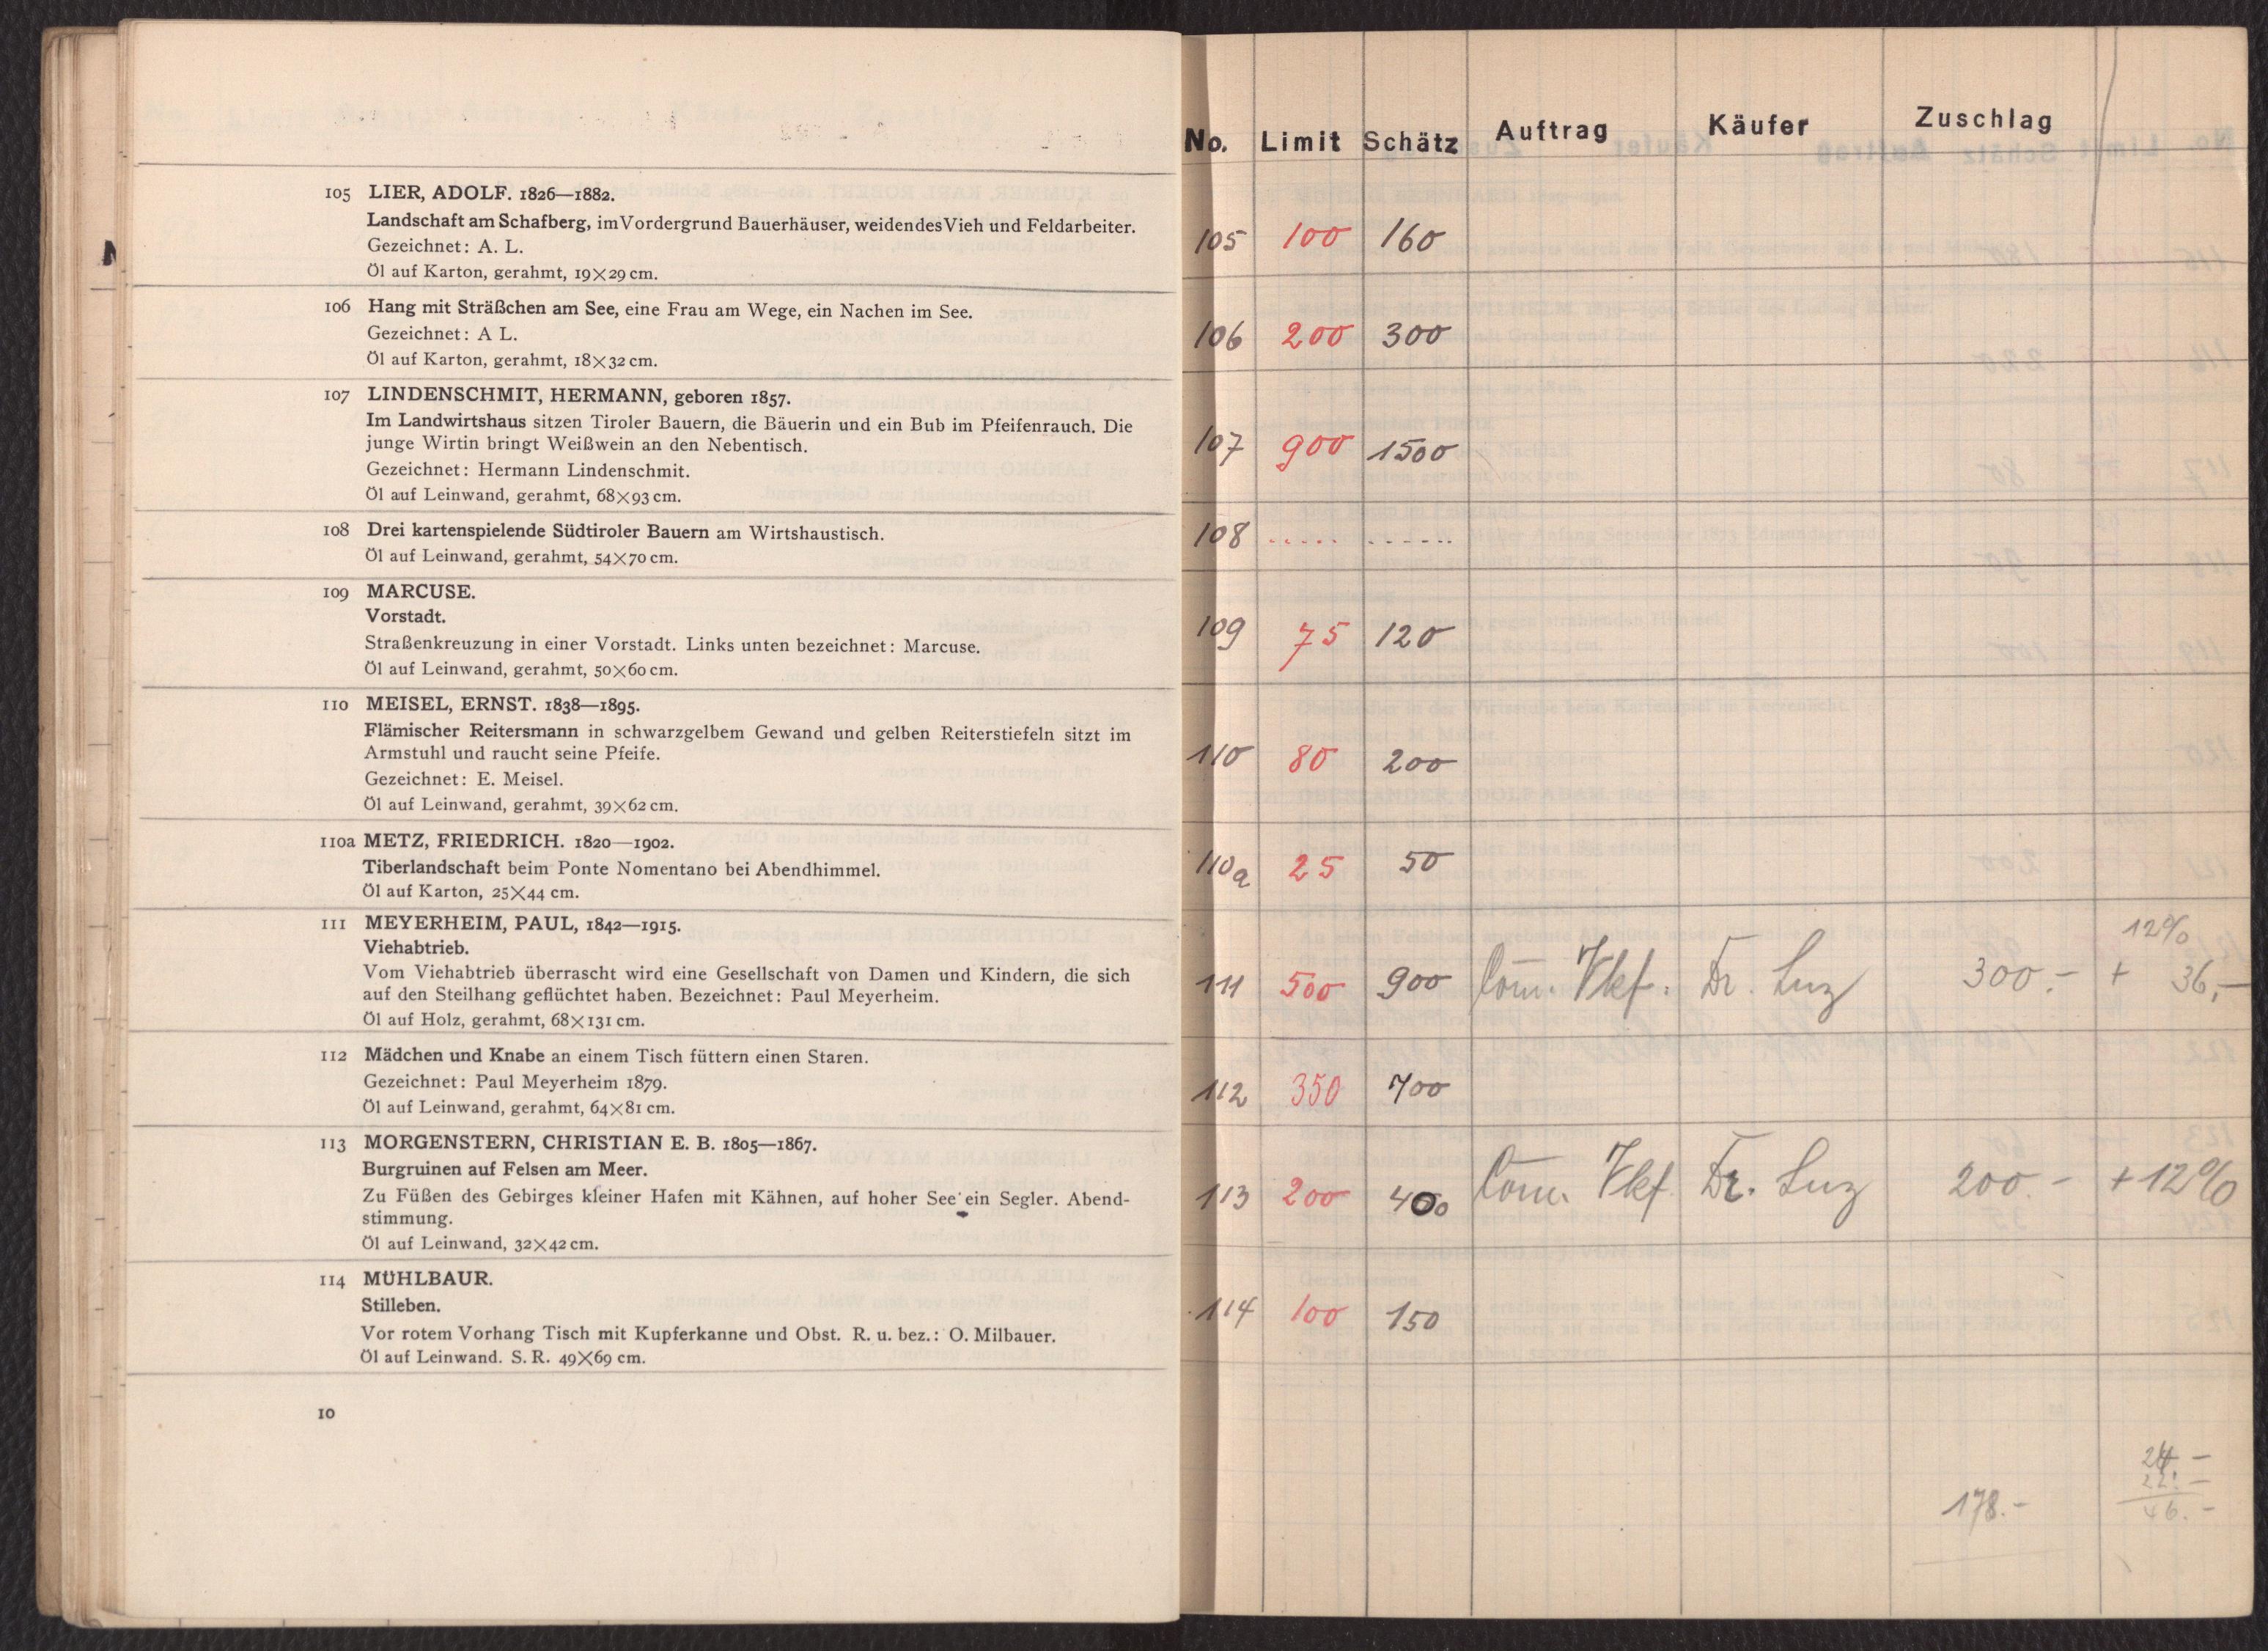 105 LIER, ADOLF. 1826—1882.
Landschaft am Schafberg, im Vordergrund Bauerhäuser, weidendes Vieh und Feldarbeiter.
Gezeichnet: A. L.
Öl auf Karton, gerahmt, 19×29 cm.
106 Hang mit Sträßchen am See, eine Frau am Wege, ein Nachen im See.
Gezeichnet: A L.
Öl auf Karton, gerahmt, 18×32 cm.
107 LINDENSCHMIT, HERMANN, geboren 1857.
Im Landwirtshaus sitzen Tiroler Bauern, die Bäuerin und ein Bub im Pfeifenrauch. Die
junge Wirtin bringt Weißwein an den Nebentisch.
Gezeichnet: Hermann Lindenschmit.
Öl auf Leinwand, gerahmt, 68×93 cm.
108 Drei kartenspielende Südtiroler Bauern am Wirtshaustisch.
Öl auf Leinwand, gerahmt, 54×70 cm.
109 MARCUSE.
Vorstadt.
Straßenkreuzung in einer Vorstadt. Links unten bezeichnet: Marcuse.
Öl auf Leinwand, gerahmt, 50×60 cm.
110 MEISEL, ERNST. 1838—1895.
Flämischer Reitersmann in schwarzgelbem Gewand und gelben Reiterstiefeln sitzt im
Armstuhl und raucht seine Pfeife.
Gezeichnet: E. Meisel.
Öl auf Leinwand, gerahmt, 39×62 cm.
110a METZ, FRIEDRICH. 1820—1902.
Tiberlandschaft beim Ponte Nomentano bei Abendhimmel.
Öl auf Karton, 25×44 cm.
111 MEYERHEIM, PAUL, 1842—1915.
Viehabtrieb.
Vom Viehabtrieb überrascht wird eine Gesellschaft von Damen und Kindern, die sich
auf den Steilhang geflüchtet haben. Bezeichnet: Paul Meyerheim.
Öl auf Holz, gerahmt, 68×131 cm.
112 Mädchen und Knabe an einem Tisch füttern einen Staren.
Gezeichnet: Paul Meyerheim 1879.
Öl auf Leinwand, gerahmt, 64×81 cm.
113 MORGENSTERN, CHRISTIAN E. B. 1805—1867.
Burgruinen auf Felsen am Meer.
Zu Füßen des Gebirges kleiner Hafen mit Kähnen, auf hoher See ein Segler. Abend-
stimmung.
Öl auf Leinwand, 32×42 cm.
114 MÜHLBAUR.
Stilleben.
Vor rotem Vorhang Tisch mit Kupferkanne und Obst. R. u. bez.: O. Milbauer.
Öl auf Leinwand. S. R. 49×69 cm.
10
No. Limit Schätz Auftrag Käufer Zuschlag
105 100 160
106 200 300
107 900 1500
108 ..... ......
109 75 120
110 80 200
110a 25 50
12%
111 500 900 Com. Vkf. Dr. Luz 300.- + 36,-
112 350 700
113 200 400 Com. Vkf. Dr. Luz 200.- +12%
114 100 150
24.-
22.-
178.- 46.-